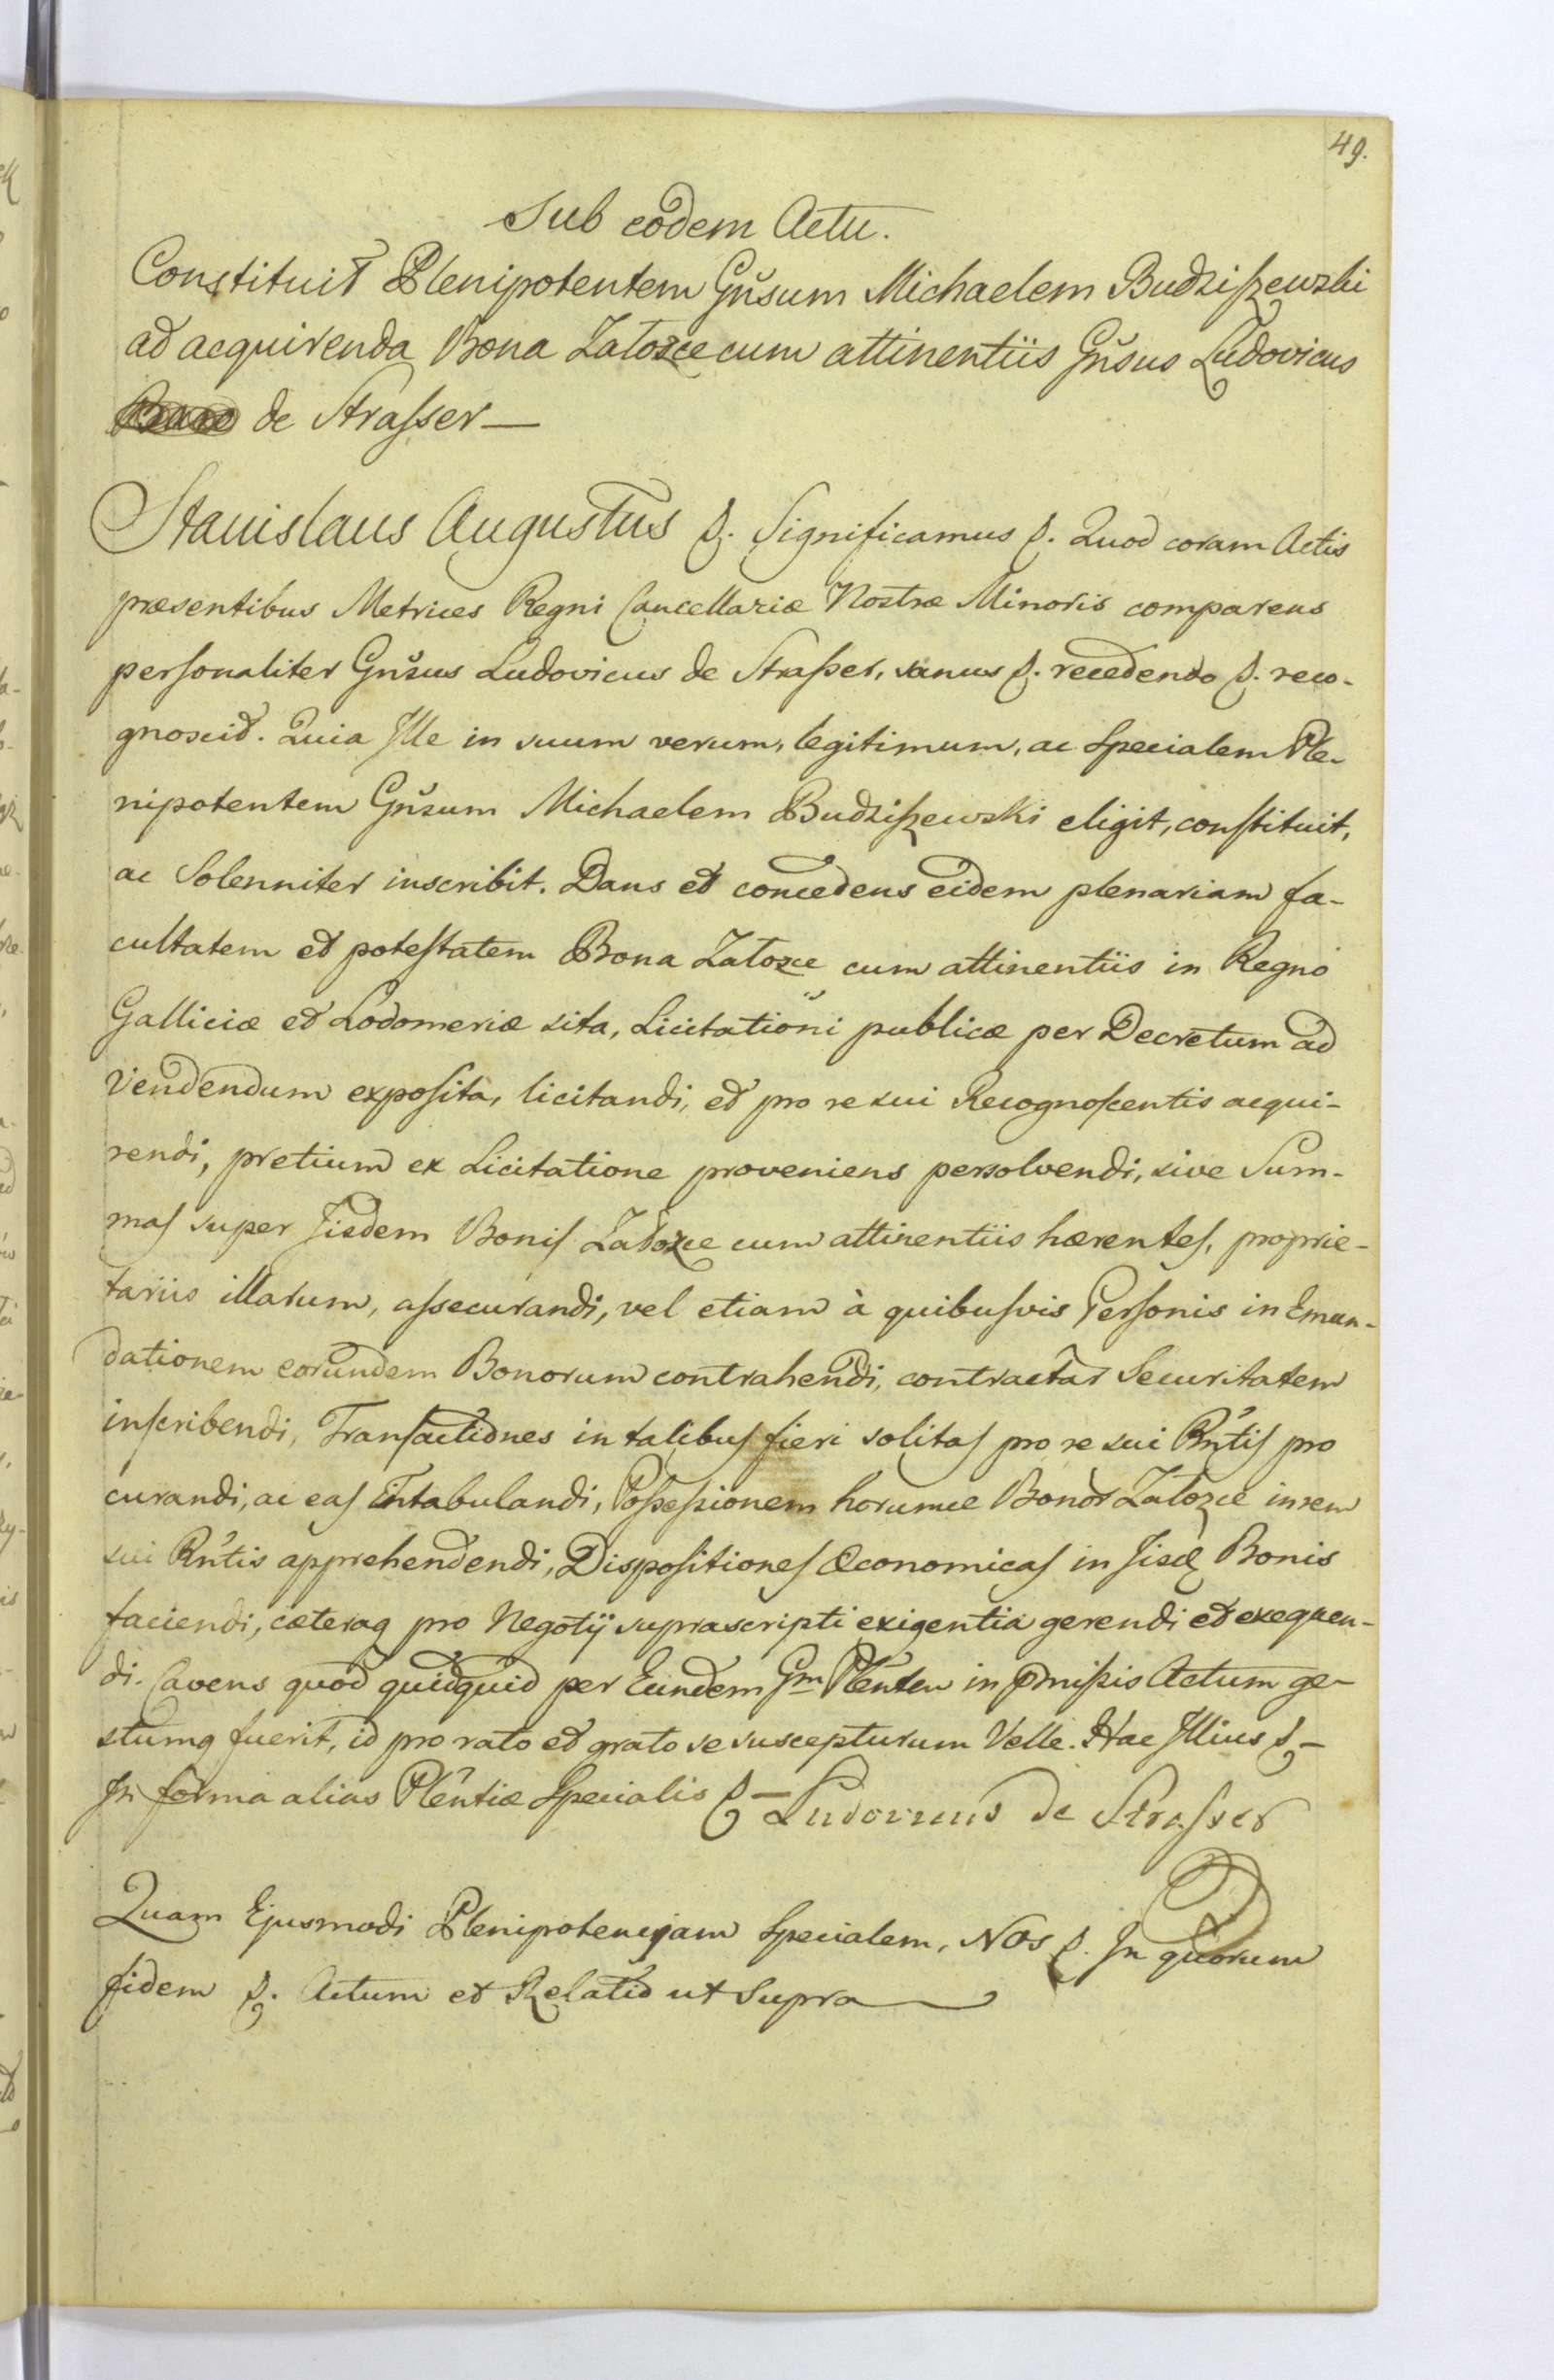 49.
Sub eodem Actu.
Constituit Plenipotentem Gnsum Michaelem Budziszewski
ad acquirenda Bona Załosce cum attinentiis Gnsus Ludovicus
de Strasser —
Stanislaus Augustus &. Significamus &. Quod coram Actis
præsentibus Metrices Regni Cancellariæ Nostræ Minoris comparens
personaliter Gnsus Ludovicus de Strasser, sanus &. recedendo &. reco-
gnoscit. Quia Ille in suum verum, legitimum, ac specialem Ple-
nipotentem Gnsum Michaelem Budziszewski eligit, constituit,
ac Solenniter inscribit. Dans et concedens eidem plenariam fa-
cultatem et potestatem Bona Załosce cum attinentiis in Regno
Galliciæ et Lodomeriæ sita, Licitationi publicæ per Decretum ad
Vendendum exposita, licitandi, et pro re sui Recognoscentis acqui-
rendi, pretium ex Licitatione proveniens persolvendi, sive Sum-
mas super Jisdem Bonis Załozce cum attinentiis hærentes, proprie-
tariis illarum, assecurandi, vel etiam à quibusvis Personis in Emen-
dationem eorundem Bonorum contrahendi, contractar Securitatem
inscribendi, Transactiones in talibus fieri solitas pro re sui Rntis pro
curandi, ac eas Intabulandi, Possessionem horumce Bonor Załozce in rem
sui Rntis apprehendendi, Dispositiones Œconomicas in Jisd Bonis
faciendi, cæteraq pro Negotij suprascripti exigentia gerendi et exequen-
di. Cavens quod quidquid per Eundem Gm Plenten in pmissis Actum ge-
stumq fuerit, id pro rato et grato se suscepturum Velle. Hac Illius & —
In forma alias Plentiæ Specialis & — Ludovicus de Strasser
Quam Ejusmodi Plenipotencjam Specialem, Nos &. In quorum
fidem &. Actum et Relatio ut Supra